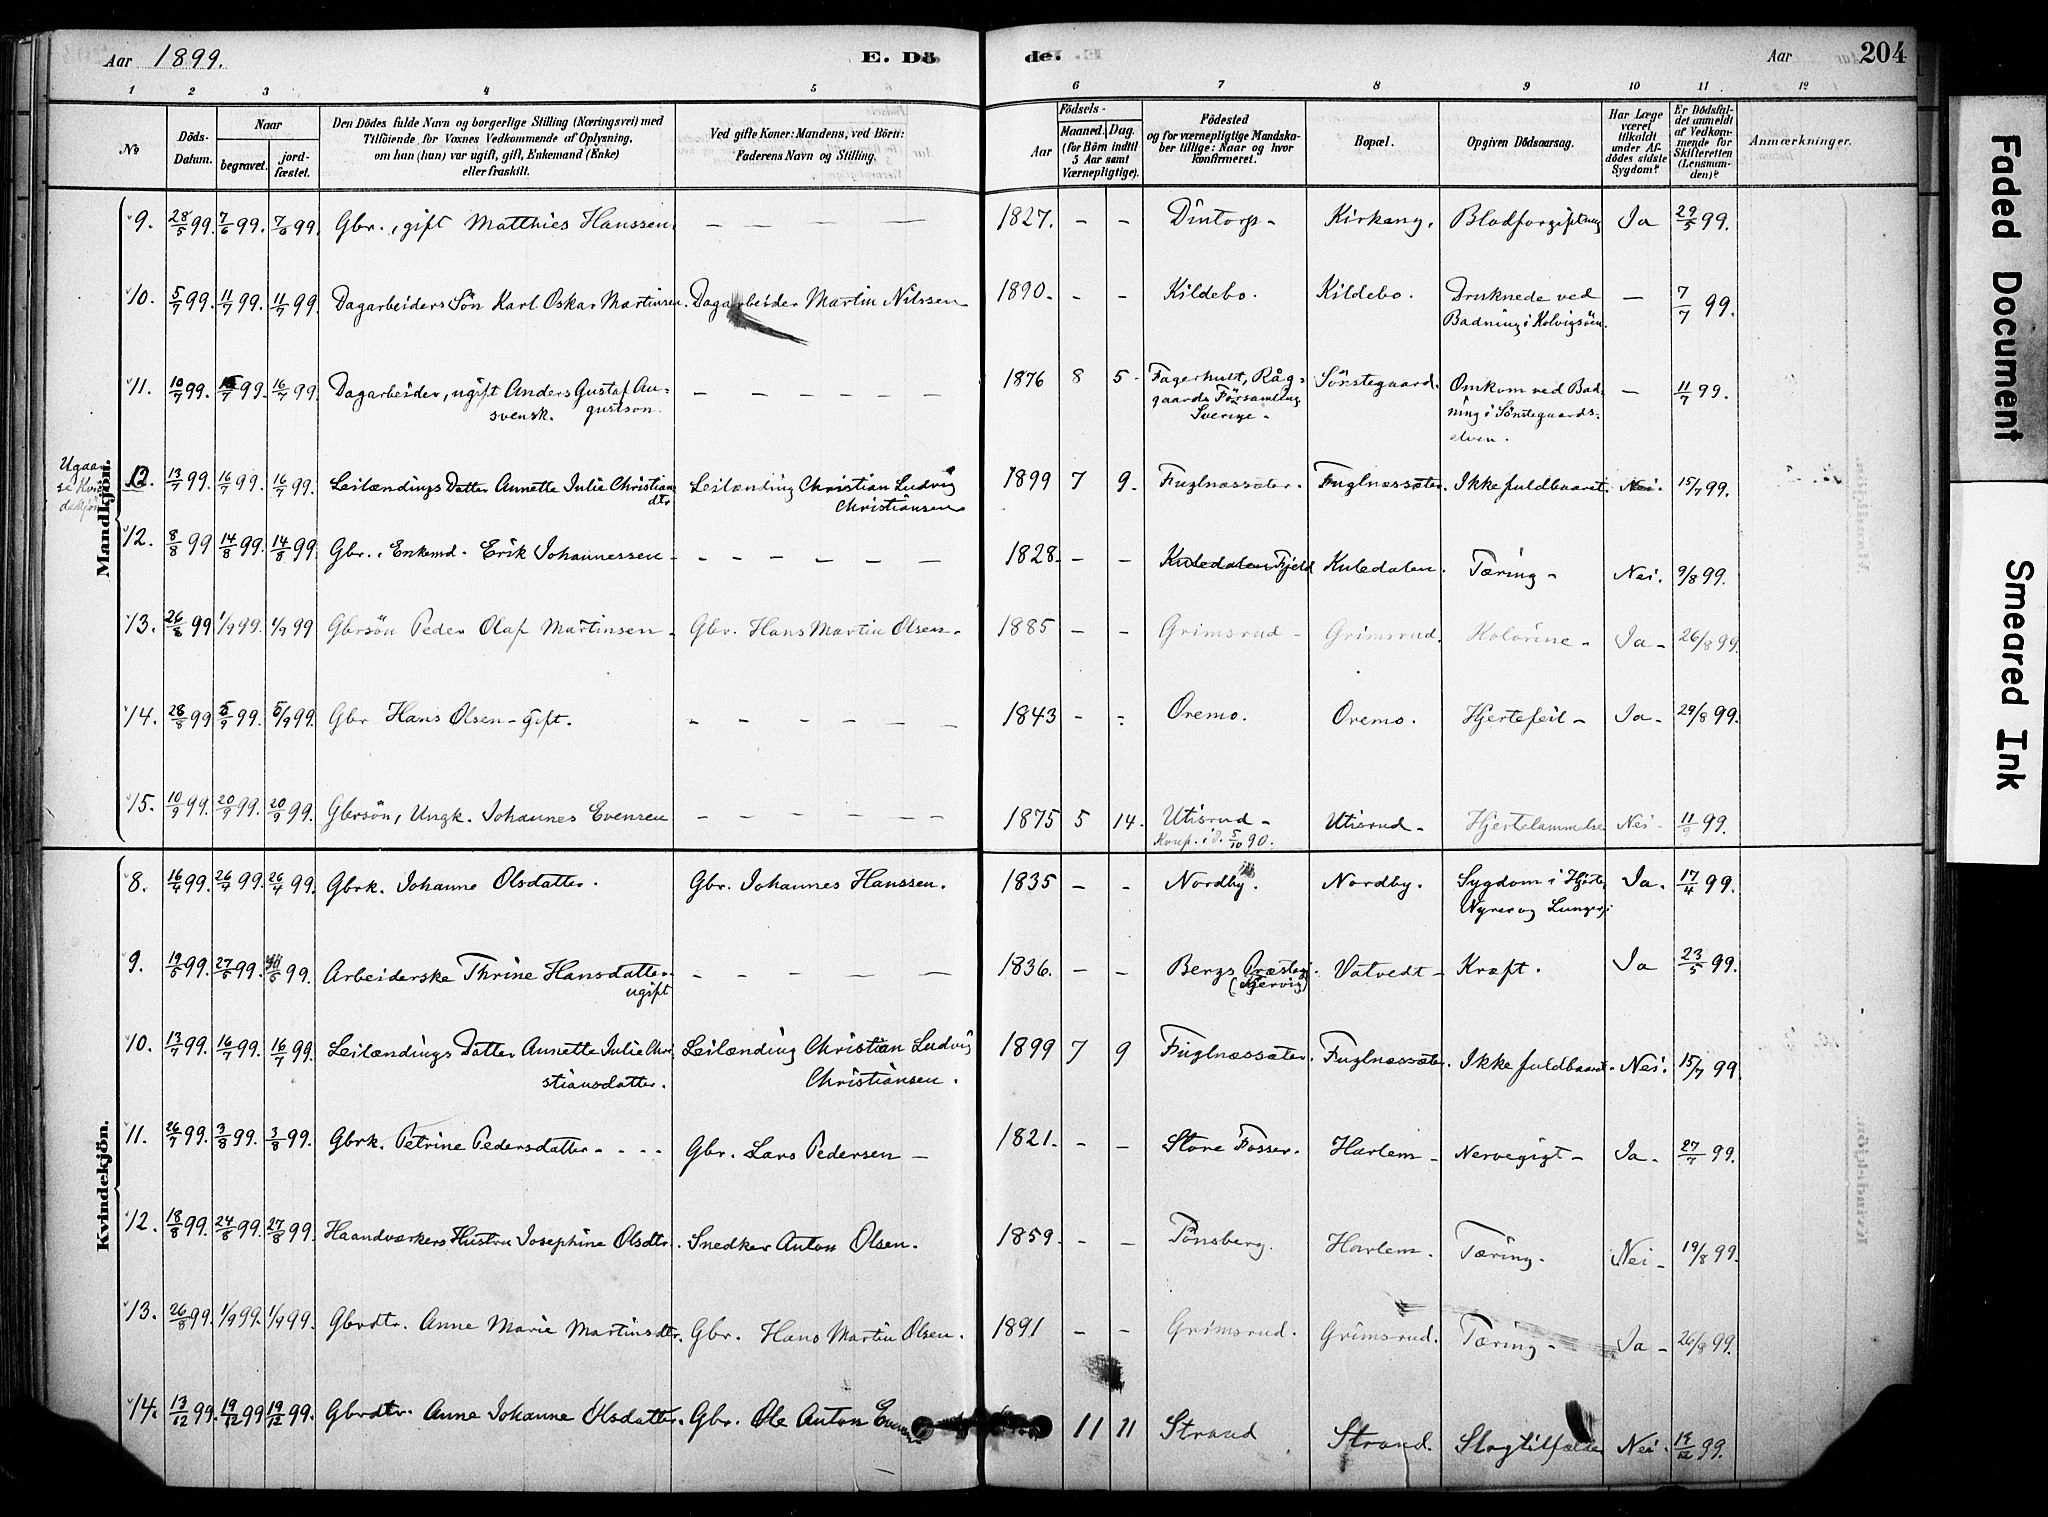 Aar 1899. E. Dö de. Aar 204
1 2 3 4 5 6 7 8 9 10 11 12
No
Döds-Datum.
Naar
begravet.
jord-fæstet.
Den Dödes fulde Navn og borgerlige Stilling (Næringsvei) med
Tilföiende for Voxnes Vedkommende af Oplysning,
om han (hun) var ugift, gift, Enkemand (Enke)
eller fraskilt.
Ved gifte Koner: Mandens, ved Börn:
Faderens Navn og Stilling.
Födsels-
Aar
Maaned. Dag.
(for Börn indtil
5 Aar samt
Værnepligtige).
Födested
og for værnepligtige Mandska-
ber tillige: Naar og hvor
konfirmeret.
Bopæl.
Opgiven Dödsaarsag.
Har Læge
været
tilkaldt
under Af-
dödes sidste
Sygdom?
Er Dödsfal-
det anmeldt
af Vedkom-
mende for
Skifteretten
(Lensman-
den)?
Anmærkninger.
Mandkjön.
9. 28/5 99. 7/6 99. 7/6 99. Gbr., gift Matthies Hanssen. — — — — 1827. - - Dintorp - Kirkeng. Blodforgiftning Ja 29/5 99.
10. 5/7 99. 11/7 99. 11/7 99. Dagarbeiders Sön Karl Oskar Martinsen. Dagarbeider Martin Nilssen 1890. - - Kildebo. Kildebo. Druknede ved — 7/7 99.
Badning i Kolvigsöen.
11. 10/7 99. 16/7 99. 16/7 99. Dagarbeider, ugift Anders Gustaf Au- — — — — — — 1876 8 5. Fagerhult, Råg- Sönstegaard. Omkom ved Bad- — 11/7 99.
svensk. gustson. gaards Församling ning i Sönstegaards-
Sverige - elven.
12. 13/7 99. 16/7 99. 16/7 99. Leilændings Datter Annette Julie Christians Leilænding Christian Ludvig 1899 7 9. Fuglnæssæter. Fuglnæssæter. Ikke fuldbaaret Nei. 15/7 99.
dtr Christiansen
12. 8/8 99 14/8 99. 14/8 99. Gbr., Enkemd. Erik Johannessen - — — — — — 1828. - - Kuledalen Fjeld Kuledalen. Tæring - Nei. 9/8 99.
13. 26/8 99 1/9 99. 1/9 99 Gbrsön Peder Olaf Martinsen - Gbr. Hans Martin Olsen - 1885 - - Grimsrud - Grimsrud. Kolorine - Ja - 26/8 99.
14. 28/8 99 5/9 99. 5/9 99. Gbr Hans Olsen - gift. — — — — — — 1843 - - Oremo. Oremo. Hjertefeil - Ja - 29/8 99.
15. 10/9 99. 20/9 99. 20/9 99. Gbrsön, Ungk. Johannes Evensen — — — — — — 1875 5 14. Utisrud - Utisrud - Hjertelammelse Nei - 11/9 99.
Konf. i d. 5/10 90.
Kvindekjön.
8. 16/4 99. 26/4 99. 26/4 99. Gbrk. Johanne Olsdatter. Gbr. Johannes Hanssen. 1835 - - Nordby. Nordby. Sygdom i Hjerte, Ja. 17/4 99.
Nyrer og Lunger.
9. 19/5 99. 27/5 99. 5 99. Arbeiderske Thrine Hansdatter. — — — — — 1836. - - Bergs Præstegj. Vatvedt - Kræft. Ja 23/5 99.
ugift
10. 13/7 99. 16/7 99. 16/7 99. Leilændings Datter Annette Julie Chri Leilænding Christian Ludvig 1899 7 9 Fuglnæssæter. Fuglnæssæter. Ikke fuldbaaret. Nei. 15/7 99.
stiansdatter. Christiansen.
11. 26/7 99. 3/8 99. 3/8 99. Gbrk. Petrine Pedersdatter - - - - Gbr. Lars Pedersen - 1821. - - Store Fosser. Harlem - Nervegigt - Ja - 27/7 99.
12. 18/8 99. 24/8 99. 27/8 99. Haandværkers Hustru Josephine Olsdtr. Snedker Anton Olsen. 1859. - - Tönsberg. Harlem. Tæring. Nei - 19/8 99.
13. 26/8 99. 1/9 99. 1/9 99. Gbrdtr. Anne Marie Martinsdtr. Gbr. Hans Martin Olsen. 1891 - - Grimsrud. Grimsrud. Tæring - Ja - 26/8 99.
14. 13/12 99. 19/12 99 19/12 99. Gbrdtr. Anne Johanne Olsdatter. Gbr. Ole Anton 11 11 Strand Strand. Slagtilfælde Nei. 19/12 99.
Faded Document
Smeared Ink